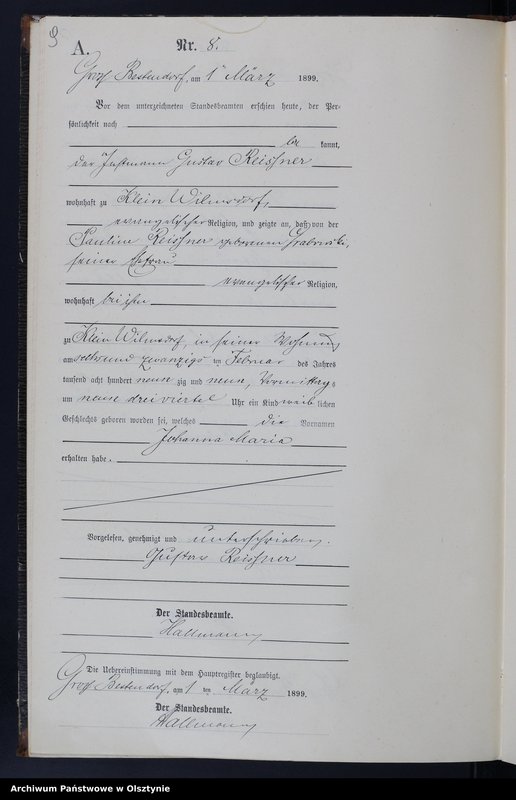 9
A. Nr. 8.
Groß Bestendorf, am 1ten März 1899.
Vor dem unterzeichneten Standesbeamten erschien heute, der Per-
sönlichkeit nach
be kannt,
der Instmann Gustav Reissner
wohnhaft zu Klein Wilmsdorf,
evangelischer Religion, und zeigte an, daß von der
Pauline Reissner geborenen Grabowski,
seiner Ehefrau
evangelischer Religion,
wohnhaft bei ihm
zu Klein Wilmsdorf, in seiner Wohnung
am sechsundzwanzigsten Februar des Jahres
tausend acht hundert neun zig und neun, Vormittags
um neun dreiviertel Uhr ein Kind weib lichen
Geschlechts geboren worden sei, welches die Vornamen
Johanna Maria
erhalten habe.
Vorgelesen, genehmigt und unterschrieben.
Gustav Reissner
Der Standesbeamte.
Hallmann
Die Uebereinstimmung mit dem Hauptregister beglaubigt.
Groß Bestendorf, am 1 ten März 1899.
Der Standesbeamte.
Hallmann
Archiwum Państwowe w Olsztynie